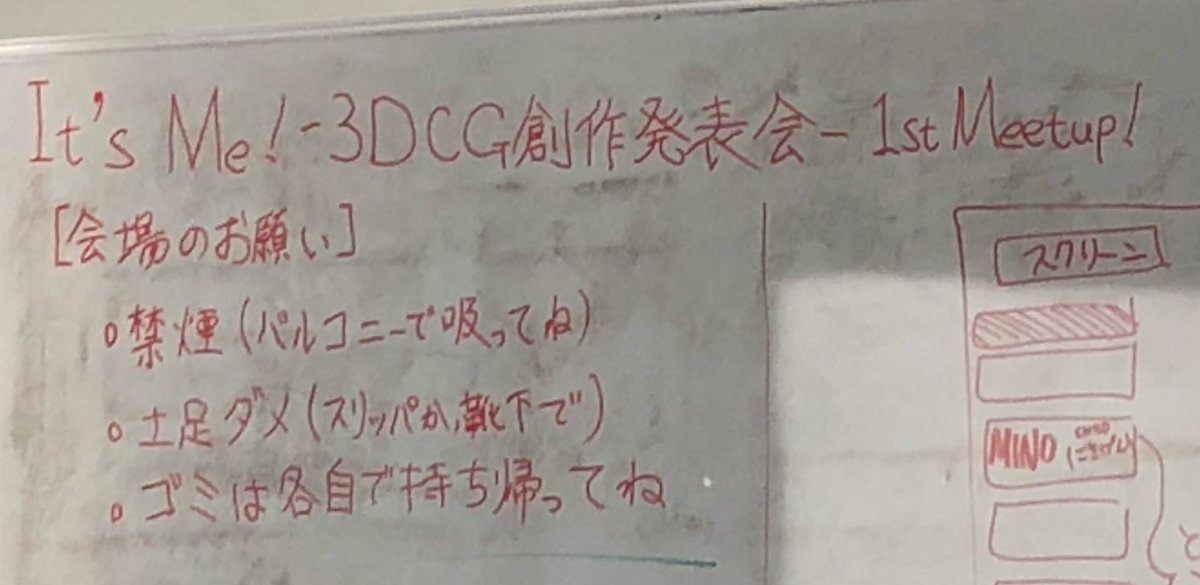 It's Me! -3DCG創作発表会- 1st Meetup!
[会場のお願い]
○禁煙(バルコニーで吸ってね)
○土足ダメ(スリッパか靴下で)
○ゴミは各自で持ち帰ってね
スクリーン
MINO